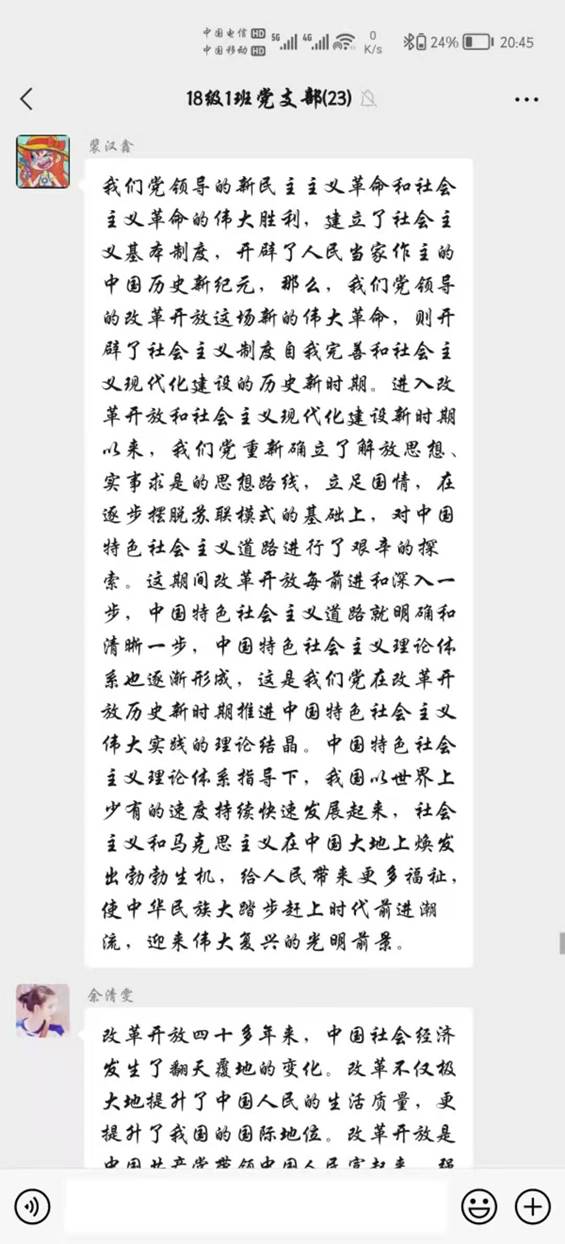 中国电信 HD 5G 4G 0 24% 20:45
中国移动 HD K/s
18级1班党支部(23)
裴汉鑫
我们党领导的新民主主义革命和社会
主义革命的伟大胜利，建立了社会主
义基本制度，开辟了人民当家作主的
中国历史新纪元，那么，我们党领导
的改革开放这场新的伟大革命，则开
辟了社会主义制度自我完善和社会主
义现代化建设的历史新时期。进入改
革开放和社会主义现代化建设新时期
以来，我们党重新确立了解放思想、
实事求是的思想路线，立足国情，在
逐步摆脱苏联模式的基础上，对中国
特色社会主义道路进行了艰辛的探
索。这期间改革开放每前进和深入一
步，中国特色社会主义道路就明确和
清晰一步，中国特色社会主义理论体
系也逐渐形成，这是我们党在改革开
放历史新时期推进中国特色社会主义
伟大实践的理论结晶。中国特色社会
主义理论体系指导下，我国以世界上
少有的速度持续快速发展起来，社会
主义和马克思主义在中国大地上焕发
出勃勃生机，给人民带来更多福祉，
使中华民族大踏步赶上时代前进潮
流，迎来伟大复兴的光明前景。
余清雯
改革开放四十多年来，中国社会经济
发生了翻天覆地的变化。改革不仅极
大地提升了中国人民的生活质量，更
提升了我国的国际地位。改革开放是
中国共产党带领中国人民富起来、强